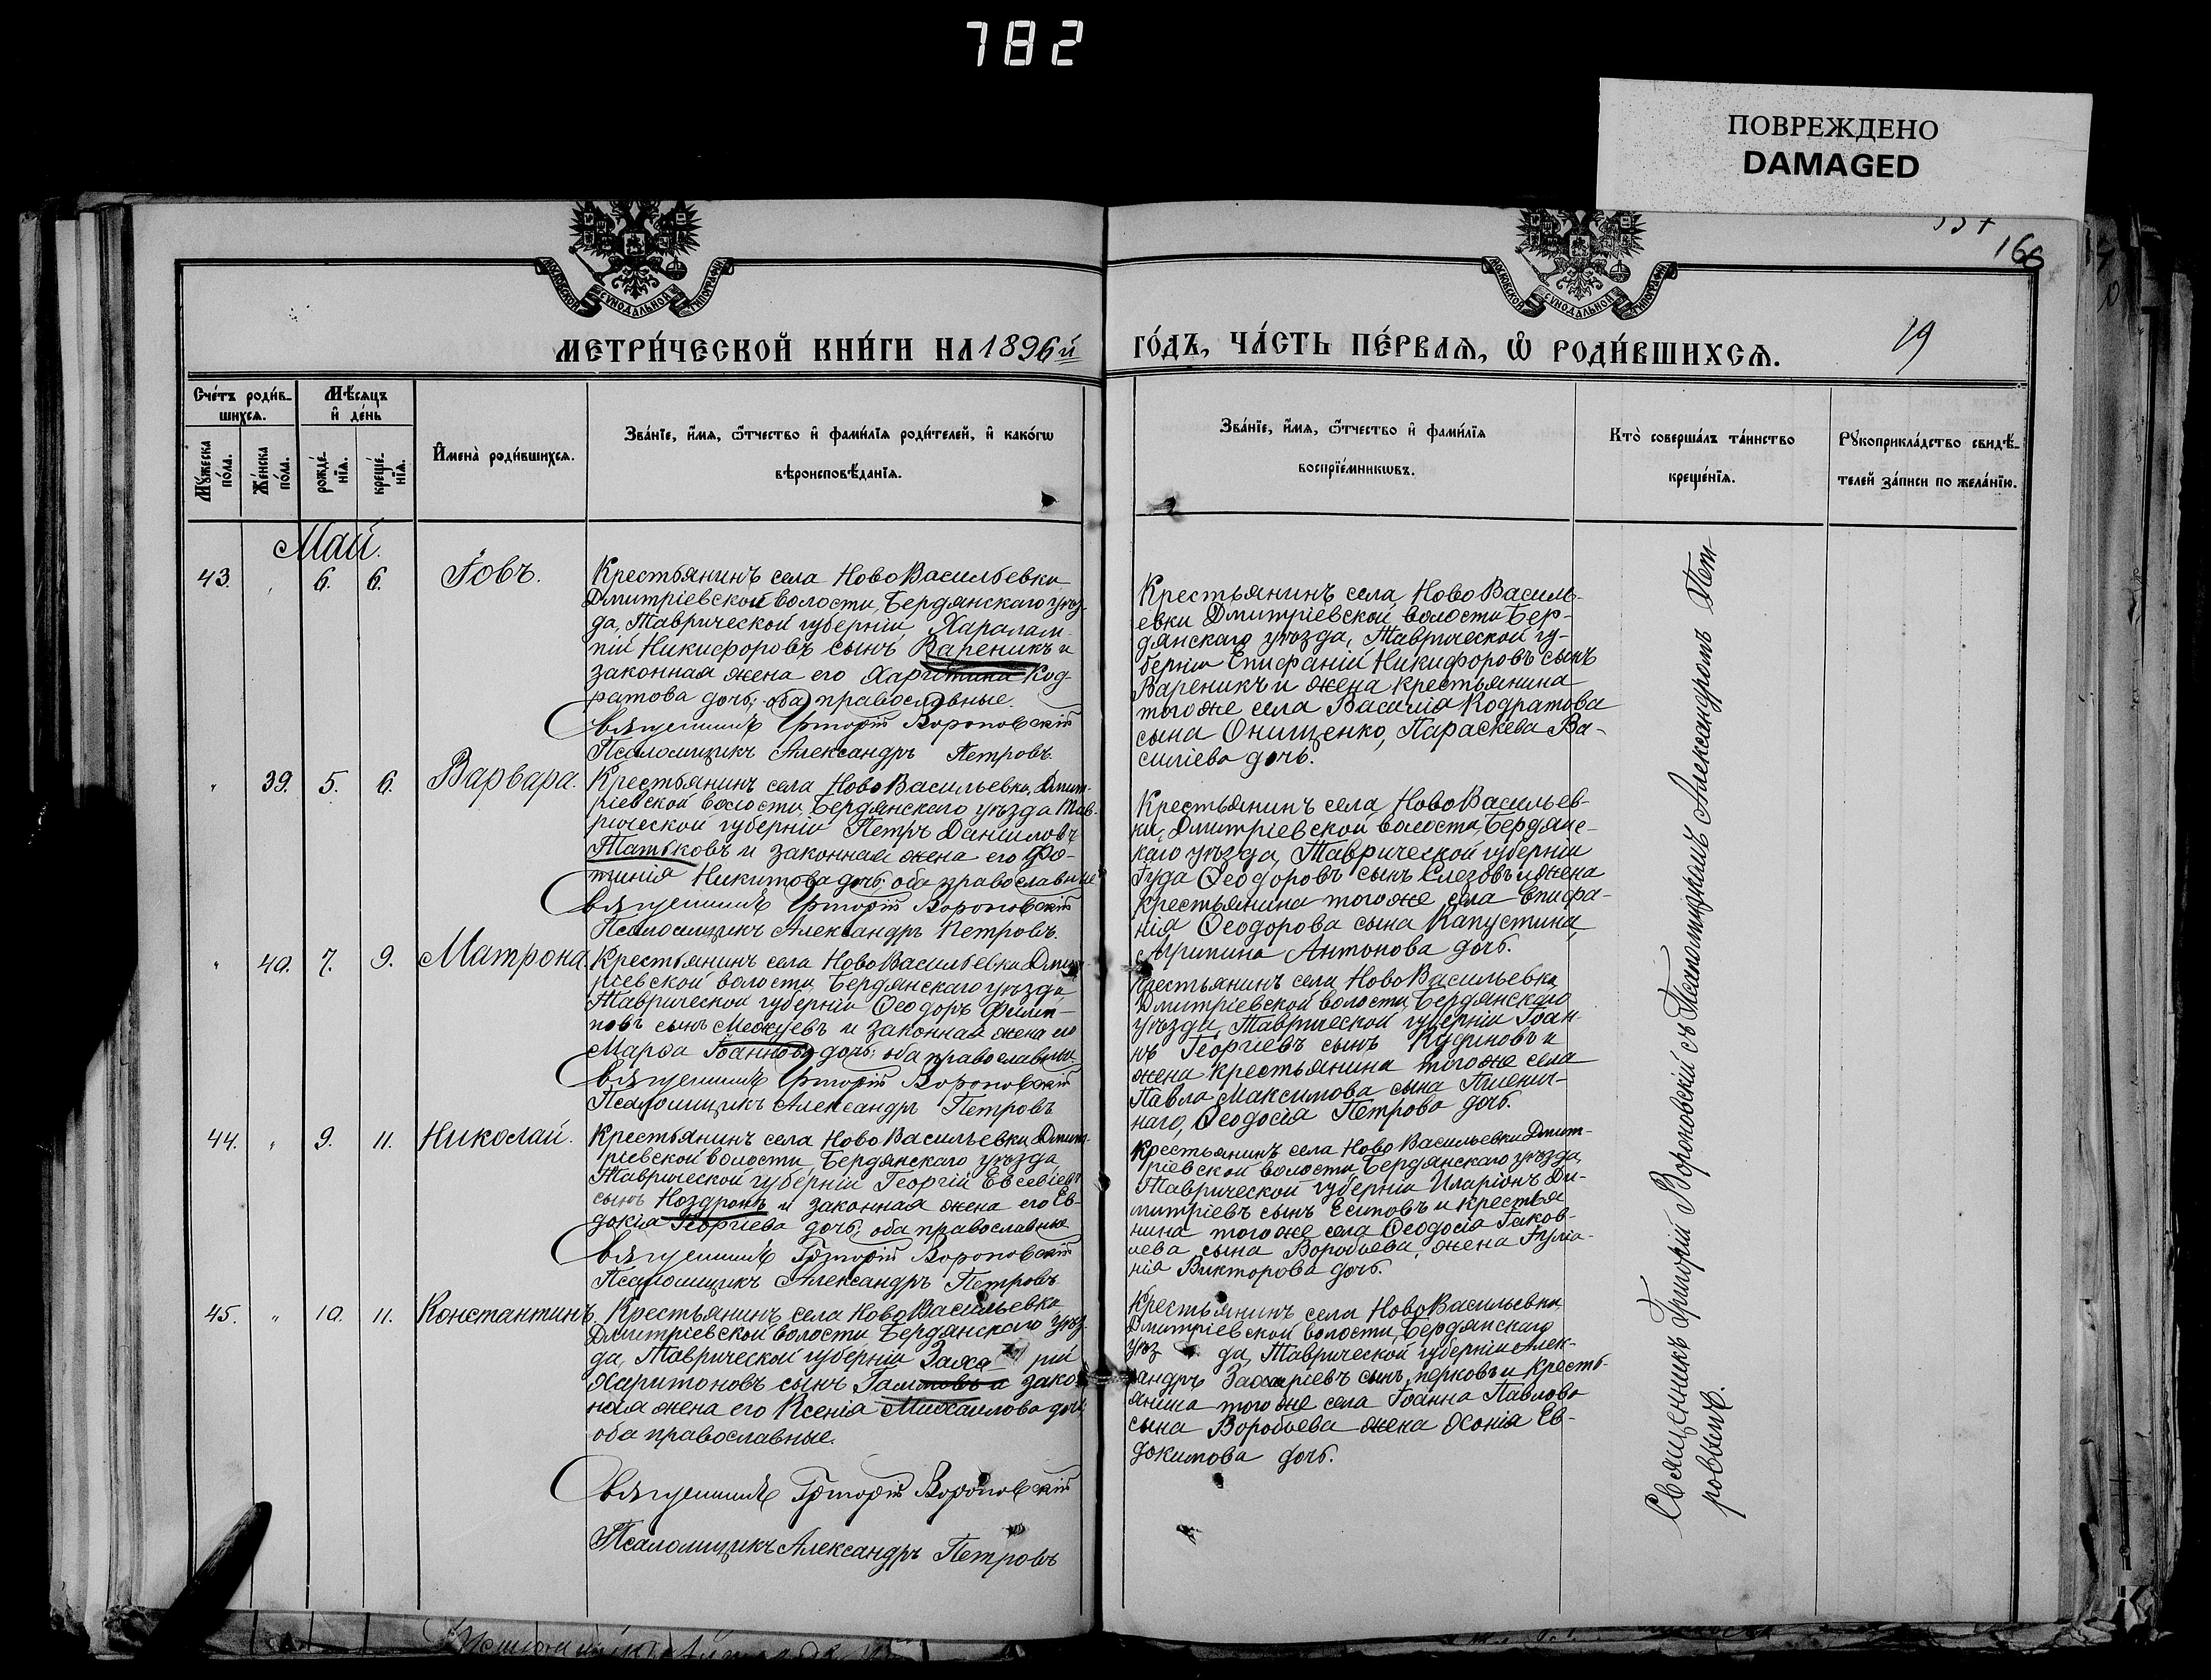 782
ПОВРЕЖДЕНО
DAMAGED
166
19
МОСКОВСКОЙ СѴНОДАЛЬНОЙ ТИПОГРАФІИ
МОСКОВСКОЙ СѴНОДАЛЬНОЙ ТИПОГРАФІИ
МЕТРИ́ЧЕСКОЙ КНИ́ГИ НА 1896й
ГО́ДЪ, ЧА́СТЬ ПЕ́РВАѦ, Ѽ РОДИ́ВШИХСѦ.
Сче́тъ роди́в-
шихсѧ.
Мѣ́сѧцъ
и҆ де́нь
Мꙋ́жеска
по́ла.
Же́нска
по́ла.
рожде́-
нїѧ.
креще́-
нїѧ.
И҆мена̀ роди́вшихсѧ.
Зва́нїе, и҆́мѧ, ѻ҆́тчество и҆ фами́лїѧ роди́телей, и҆ како́гѡ
вѣроисповѣ́данїѧ.
Зва́нїе, и҆́мѧ, ѻ҆́тчество и҆ фами́лїѧ
воспрїе́мникѡвъ.
Кто̀ соверша́лъ та́инство
креще́нїѧ.
Рꙋкоприкла́дство свидѣ́-
телей за́писи по жела́нїю.
Май.
43. 6. 6. Іовъ.
Крестьянинъ села НовоВасильевки
Дмитріевской волости, Бердянскаго уѣз-
да, Таврической губерніи Харалам-
пій Никифоровъ сынъ Вареникъ и
законная жена его Харитина Код-
ратова дочь; оба православные.
Священникъ Григорій Вороновскій
Псаломщикъ Александръ Петровъ.
Крестьянинъ села НовоВасиль-
евки Дмитріевской волости Бер-
дянскаго уѣзда, Таврической гу-
берніи Епифаній Никифоровъ сынъ
Вареникъ и жена крестьянина
того же села Василія Кодратова
сына Онищенко, Параскева Ва-
силіева дочь.
" 39. 5. 6. Варвара.
Крестьянинъ села НовоВасильевки, Дмит-
ріевской волости, Бердянскаго уѣзда Тав-
рической губерніи Петръ Даниловъ
Татьковъ и законная жена его Фо-
тинія Никитова дочь; оба православные
Священникъ Григорій Вороновскій
Псаломщикъ Александръ Петровъ.
Крестьянинъ села НовоВасильев-
ки, Дмитріевской волости, Бердянс-
каго уѣзда, Таврической губерніи
Іуда Ѳеодоровъ сынъ Слезовъ и жена
крестьянина того же села Епифа-
нія Ѳеодорова сына Капустина,
Агрипина Антонова дочь.
" 40. 7. 9. Матрона.
Крестьянинъ села НовоВасильевки Дмит-
ріевской волости, Бердянскаго уѣзда,
Таврической губерніи Ѳеодоръ Филип-
повъ сынъ Межуевъ и законная жена его
Марѳа Іоаннова дочь; оба православные.
Священникъ Григорій Вороновскій
Псаломщикъ Александръ Петровъ
Крестьянинъ села НовоВасильевки,
Дмитріевской волости, Бердянскаго
уѣзда, Таврической губерніи Іоан-
нъ Георгіевъ сынъ Кудиновъ и
жена крестьянина того же села
Павла Максимова сына Пшенич-
наго, Ѳеодосія Петрова дочь.
44. " 9. 11. Николай.
Крестьянинъ села НовоВасильевки, Дмит-
ріевской волости, Бердянскаго уѣзда
Таврической губерніи Георгій Евсевіевъ
сынъ и законная жена его Ев-
докія Георгіева дочь; оба православные
Священникъ Григорій Вороновскій
Псаломщикъ Александръ Петровъ
Крестьянинъ села НовоВасильевки Дмит-
ріевской волости, Бердянскаго уѣзда,
Таврической губерніи Иларіонъ Ди-
митріевъ сынъ Есиповъ и крестья
нина того же села Ѳеодосія Іаков-
лева сына Воробьева, жена Іуліа-
нія Викторова дочь.
45. " 10. 11. Константинъ.
Крестьянинъ села НовоВасильевки
Дмитріевской волости Бердянскаго уѣз-
да, Таврической губерніи Заха рій
Харитоновъ сынъ и закон
ная жена его Ксенія Михаилова дочь;
оба православные.
Священникъ Григорій Вороновскій
Псаломщикъ Александръ Петровъ
Крестьянинъ села НовоВасильевки,
Дмитріевской волости, Бердянскаго
уѣз да, Таврической губерніи Алек-
сандръ Захаріевъ сынъ и кресть-
янина того же села Іоанна Павлова
сына Воробьева жена Хонія Ев-
докимова дочь.
Священникъ Григорій Вороновскій съ Псаломщикомъ Александромъ Пет-
ровымъ.